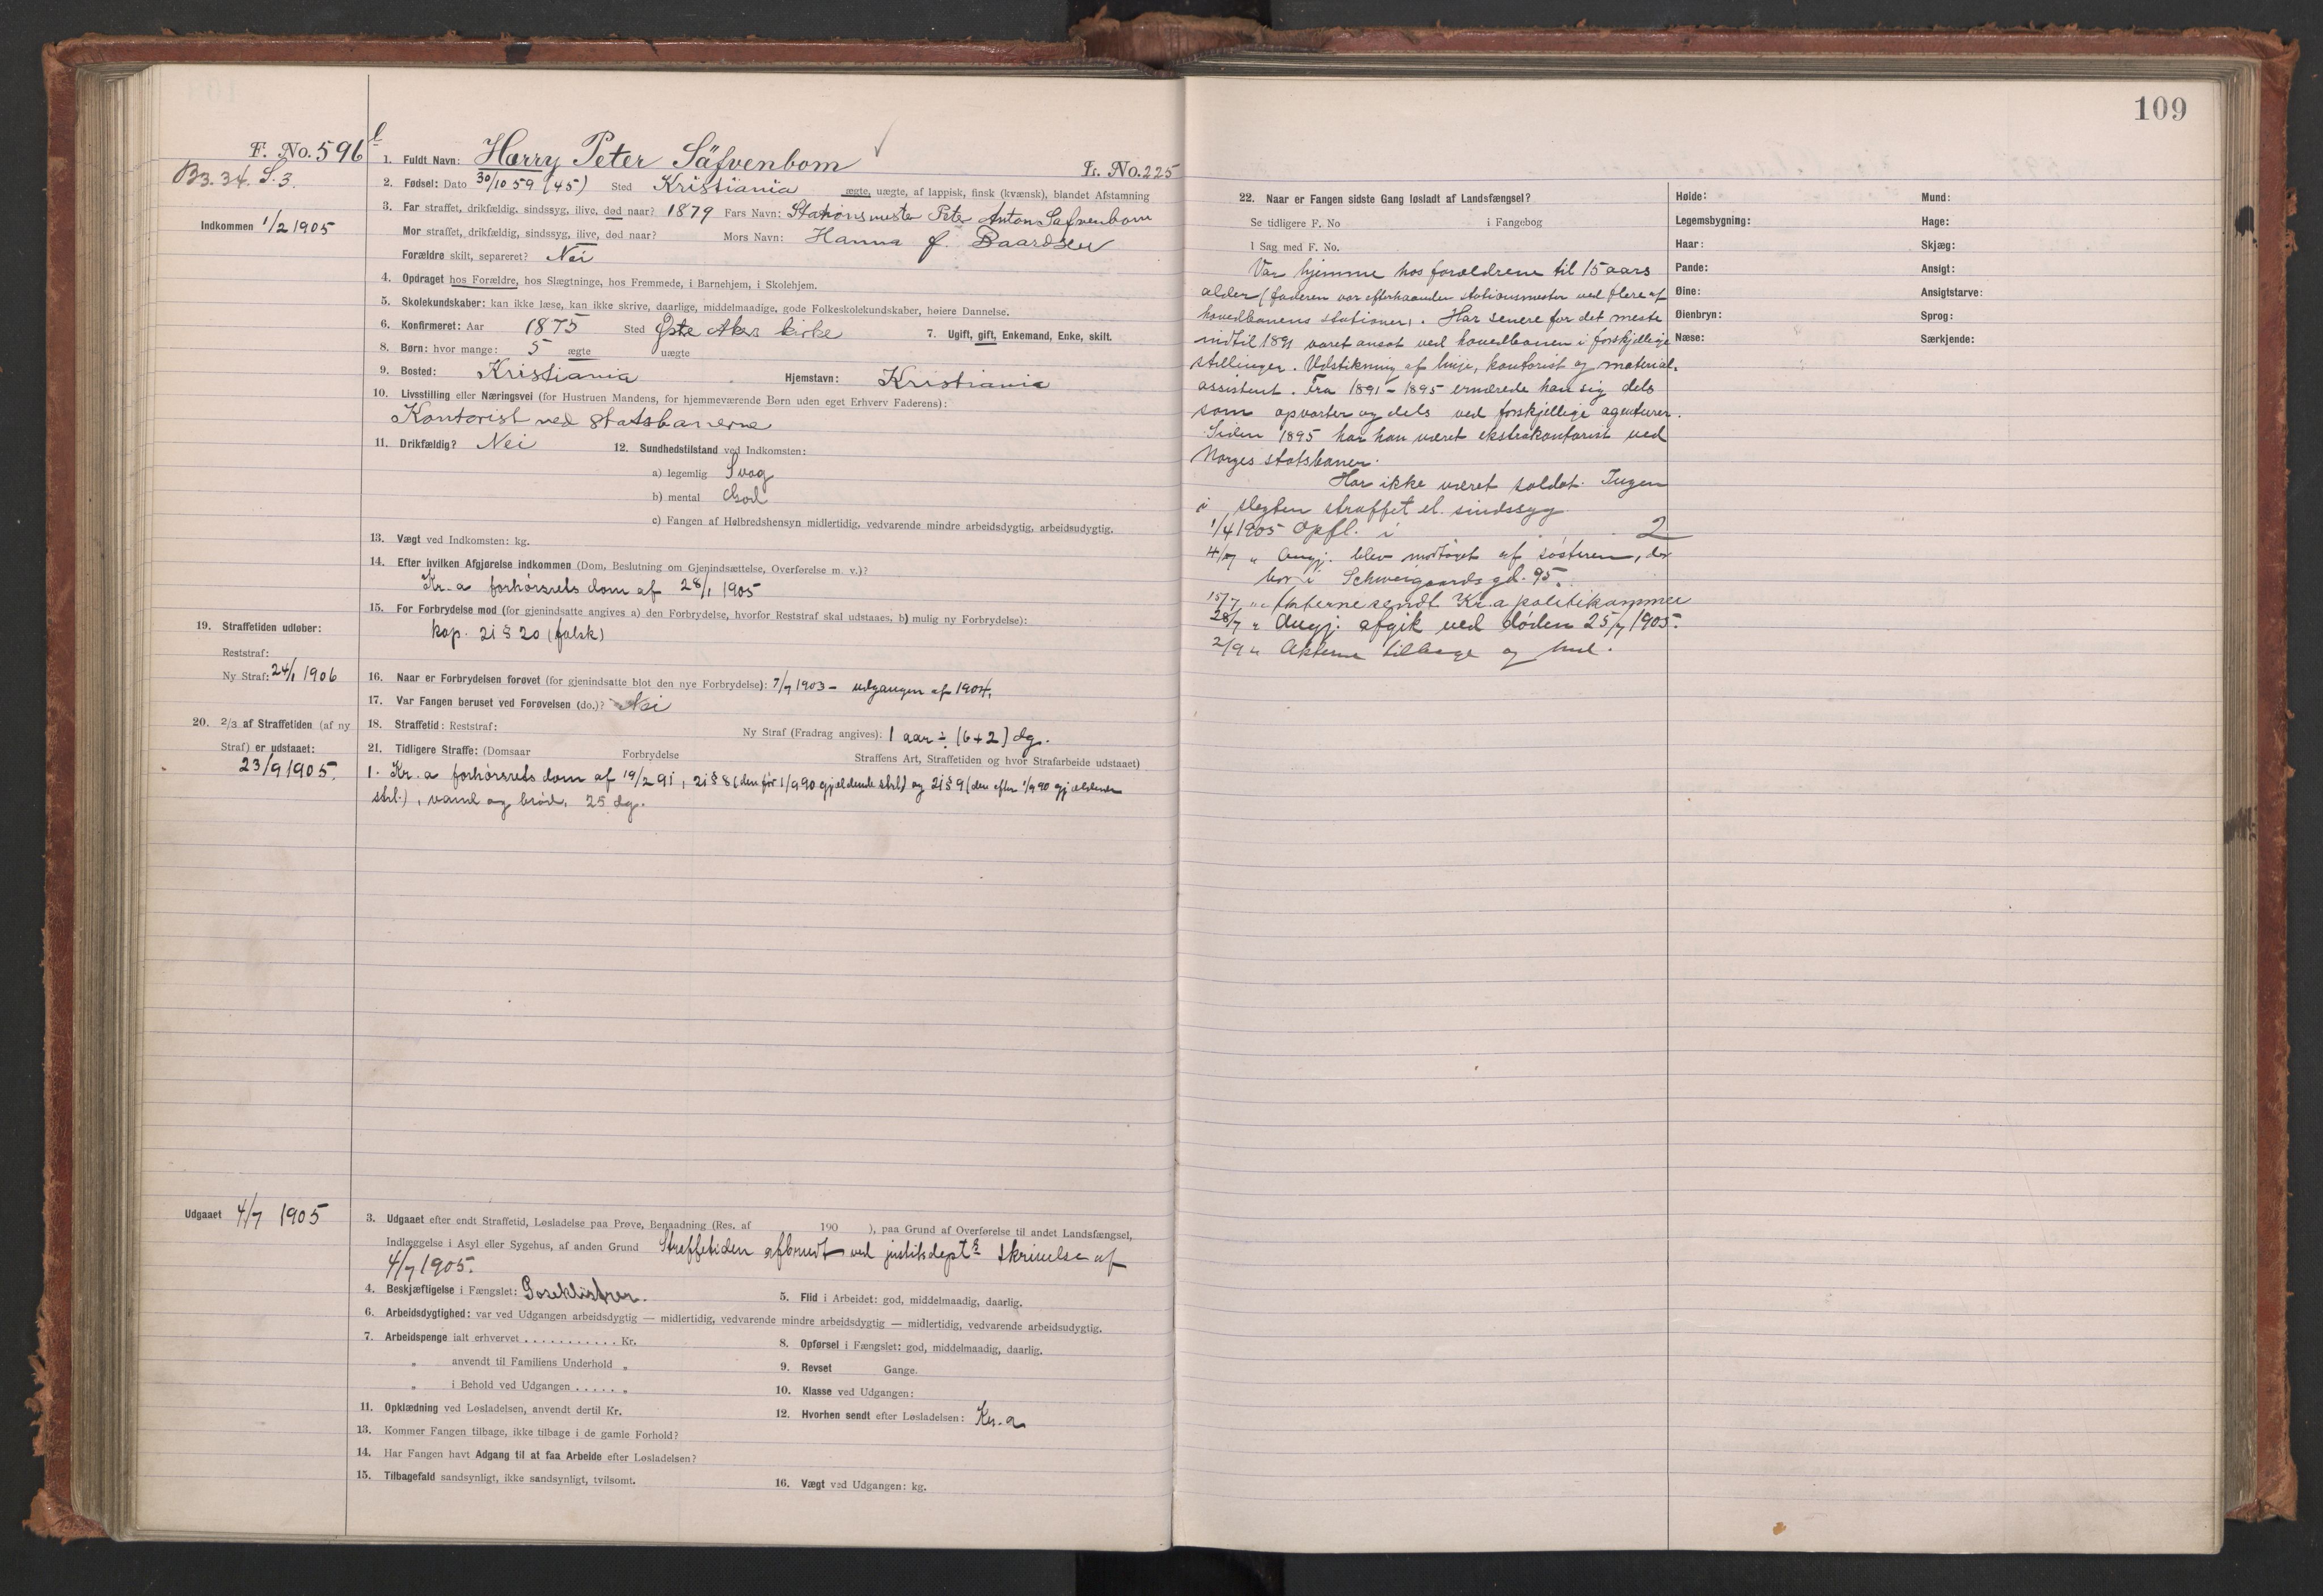 109
F. No. 596
B3. 34. S. 3.
Indkommen 1/2 1905
1. Fuldt Navn: Harry Peter Säfvenbom
Fr. No. 225
2. Fødsel: Dato 30/10 59 (45) Sted Kristiania ægte, uægte, af lappisk, finsk (kvænsk), blandet Afstamning
3. Far straffet, drikfældig, sindssyg, ilive, død naar? 1879 Fars Navn: Stationsmester Peter Anton Safvenbom
Mor straffet, drikfældig, sindssyg, ilive, død naar? Mors Navn: Hanna f. Baardsen
Forældre skilt, separeret? Nei
4. Opdraget hos Forældre, hos Slægtninge, hos Fremmede, i Barnehjem, i Skolehjem.
5. Skolekundskaber: kan ikke læse, kan ikke skrive, daarlige, middelmaadige, gode Folkeskolekundskaber, høiere Dannelse.
6. Konfirmeret: Aar 1875 Sted Østre Aker kirke 7. Ugift, gift, Enkemand, Enke, skilt.
8. Børn: hvor mange: 5 ægte uægte
9. Bosted: Kristiania Hjemstavn: Kristiania
10. Livsstilling eller Næringsvei (for Hustruen Mandens, for hjemmeværende Børn uden eget Erhverv Faderens):
Kontorist ved statsbanerne
11. Drikfældig? Nei 12. Sundhedstilstand ved Indkomsten:
a) legemlig Svag
b) mental God
c) Fangen af Helbredshensyn midlertidig, vedvarende mindre arbeidsdygtig, arbeidsudygtig.
13. Vægt ved Indkomsten: kg.
14. Efter hvilken Afgjørelse indkommen (Dom, Beslutning om Gjenindsættelse, Overførelse m. v.)?
Kr.a forhørsrets dom af 28/1 1905
15. For Forbrydelse mod (for gjenindsatte angives a) den Forbrydelse, hvorfor Reststraf skal udstaaes, b) mulig ny Forbrydelse):
kap. 21 § 20 (falsk)
19. Straffetiden udløber:
Reststraf:
Ny Straf: 24/1 1906
16. Naar er Forbrydelsen forøvet (for gjenindsatte blot den nye Forbrydelse): 7/7 1903 – udgangen af 1904.
17. Var Fangen beruset ved Forøvelsen (do.)? Nei
20. 2/3 af Straffetiden (af ny
Straf) er udstaaet:
23/9 1905.
18. Straffetid: Reststraf: Ny Straf (Fradrag angives): 1 aar ÷ (6+2) dg.
21. Tidligere Straffe: (Domsaar Forbrydelse Straffens Art, Straffetiden og hvor Strafarbeide udstaaet)
1. Kr.a forhørsrets dom af 19/2 91, 21 § 8 (den før 1/9 90 gjældende strl.) og 21 § 9 (den efter 1/9 90 gjældende
strl.), vand og brød. 25 dg.
Udgaaet 4/7 1905
3. Udgaaet efter endt Straffetid, Løsladelse paa Prøve, Benaadning (Res. af 190 ), paa Grund af Overførelse til andet Landsfængsel,
Indlæggelse i Asyl eller Sygehus, af anden Grund Straffetiden afbrudt ved justitsdepts skrivelse af
4/7 1905.
4. Beskjæftigelse i Fængslet: Poseklistrer. 5. Flid i Arbeidet: god, middelmaadig, daarlig.
6. Arbeidsdygtighed: var ved Udgangen arbeidsdygtig — midlertidig, vedvarende mindre arbeidsdygtig — midlertidig, vedvarende arbeidsudygtig.
7. Arbeidspenge ialt erhvervet . . . . . . . . . . . Kr. 8. Opførsel i Fængslet: god, middelmaadig, daarlig.
„ anvendt til Familiens Underhold „ 9. Revset Gange.
„ i Behold ved Udgangen . . . . . „ 10. Klasse ved Udgangen:
11. Opklædning ved Løsladelsen, anvendt dertil Kr. 12. Hvorhen sendt efter Løsladelsen: Kr.a
13. Kommer Fangen tilbage, ikke tilbage i de gamle Forhold?
14. Har Fangen havt Adgang til at faa Arbeide efter Løsladelsen?
15. Tilbagefald sandsynligt, ikke sandsynligt, tvilsomt. 16. Vægt ved Udgangen: kg.
22. Naar er Fangen sidste Gang løsladt af Landsfængsel?
Se tidligere F. No i Fangebog
I Sag med F. No.
Var hjemme hos forældrene til 15 aars
alder (faderen var efterhaanden stationsmester ved flere af
hovedbanens stationer). Har senere for det meste
indtil 1891 været ansat ved hovedbanen i forskjellige
stillinger. Udstikning af linje, kontorist og material-
assistent. Fra 1891 – 1895 ernærede han sig dels
som opvarter og dels ved forskjellige agenturer.
Siden 1895 har han været ekstrakontorist ved
Norges statsbaner.
Har ikke været soldat. Ingen
i slegten straffet el. sindssyg.
1/4 1905 Opfl. i 2
4/7 „ Angj. blev modtaget af søsteren, der
bor i Schweigaards gd. 95.
15/7 „ Akterne sendt Kr.a politikammer
28/7 „ Angj. afgik ved døden 25/7 1905.
2/9 „ Akterne tilbage og
Høide: Mund:
Legemsbygning: Hage:
Haar: Skjæg:
Pande: Ansigt:
Øine: Ansigtsfarve:
Øienbryn: Sprog:
Næse: Særkjende: